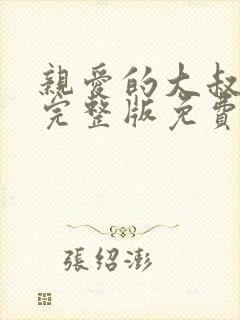 親愛的大叔
完整版免費
張紹澎